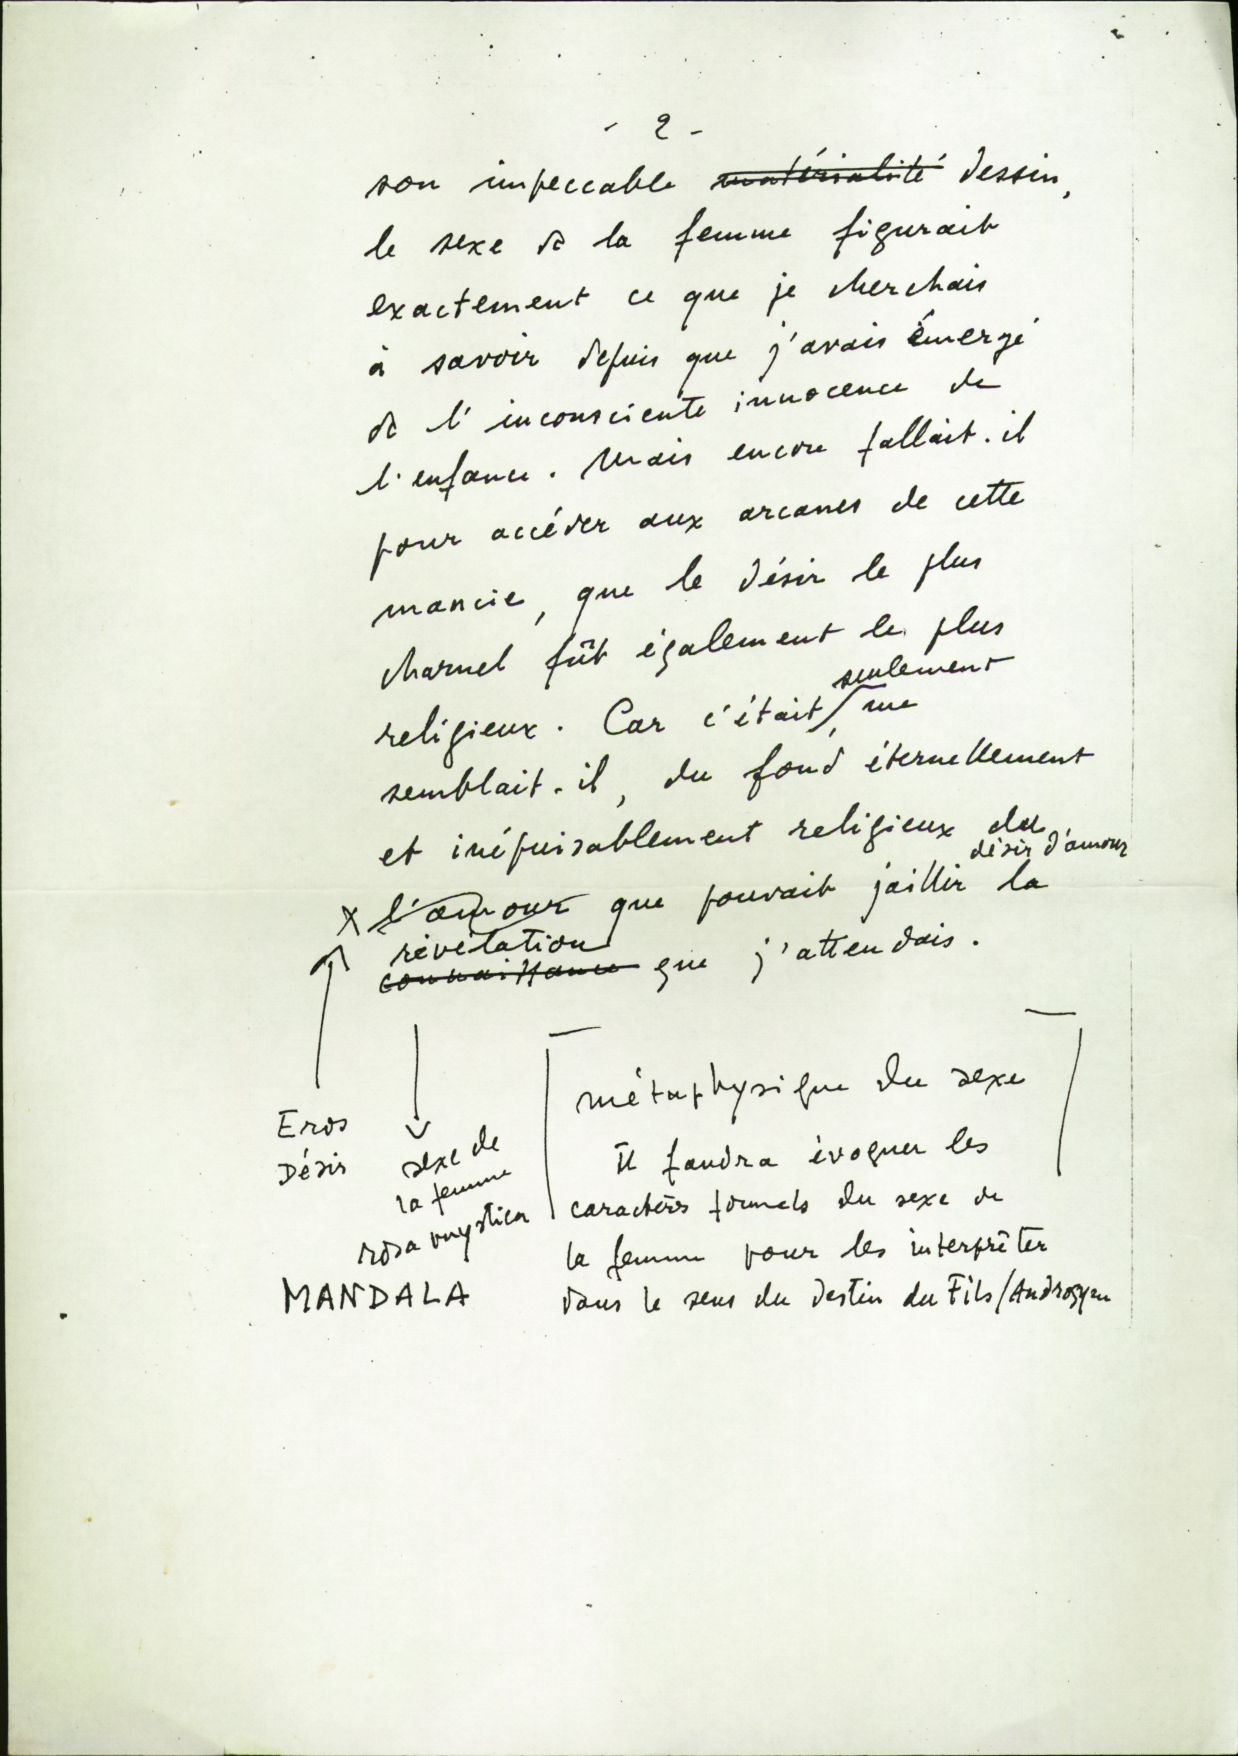 - 2 -
son impeccable matérialité dessin,
le sexe de la femme figurait
exactement ce que je cherchais
à savoir depuis que j'avais émergé
de l'inconsciente innocence de
l'enfance. Mais encore fallait-il
pour accéder aux arcanes de cette
mancie, que le désir le plus
charnel fût également le plus
seulement
religieux. Car c'était, me
semblait-il, du fond éternellement
et inépuisablement religieux du
désir d'amour
x l'amour que pouvait jaillir la
révélation
connaissance que j'attendais.
métaphysique du sexe
Eros
Désir
sexe de
la femme
rosa mystica
MANDALA
Il faudra évoquer les
caractères formels du sexe de
la femme pour les interprêter
dans le sens du destin du Fils/Androgyne